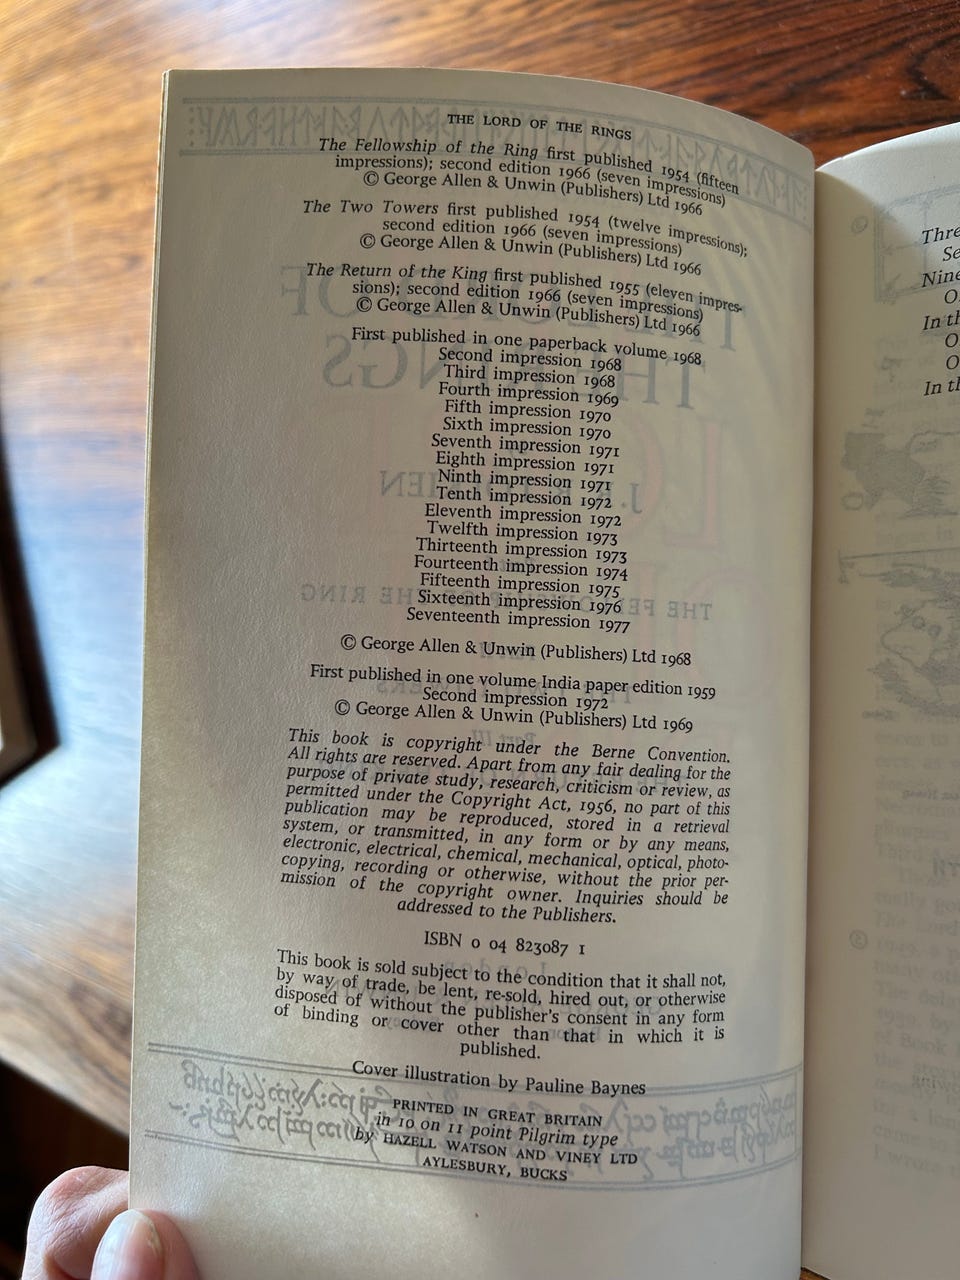 THE LORD OF THE RINGS
The Fellowship of the Ring first published 1954 (fifteen
impressions); second edition 1966 (seven impressions)
© George Allen & Unwin (Publishers) Ltd 1966
The Two Towers first published 1954 (twelve impressions);
second edition 1966 (seven impressions)
© George Allen & Unwin (Publishers) Ltd 1966
The Return of the King first published 1955 (eleven impres-
sions); second edition 1966 (seven impressions)
© George Allen & Unwin (Publishers) Ltd 1966
First published in one paperback volume 1968
Second impression 1968
Third impression 1968
Fourth impression 1969
Fifth impression 1970
Sixth impression 1970
Seventh impression 1971
Eighth impression 1971
Ninth impression 1971
Tenth impression 1972
Eleventh impression 1972
Twelfth impression 1973
Thirteenth impression 1973
Fourteenth impression 1974
Fifteenth impression 1975
Sixteenth impression 1976
Seventeenth impression 1977
© George Allen & Unwin (Publishers) Ltd 1968
First published in one volume India paper edition 1959
Second impression 1972
© George Allen & Unwin (Publishers) Ltd 1969
This book is copyright under the Berne Convention.
All rights are reserved. Apart from any fair dealing for the
purpose of private study, research, criticism or review, as
permitted under the Copyright Act, 1956, no part of this
publication may be reproduced, stored in a retrieval
system, or transmitted, in any form or by any means,
electronic, electrical, chemical, mechanical, optical, photo-
copying, recording or otherwise, without the prior per-
mission of the copyright owner. Inquiries should be
addressed to the Publishers.
ISBN 0 04 823087 1
This book is sold subject to the condition that it shall not,
by way of trade, be lent, re-sold, hired out, or otherwise
disposed of without the publisher's consent in any form
of binding or cover other than that in which it is
published.
Cover illustration by Pauline Baynes
PRINTED IN GREAT BRITAIN
in 10 on 11 point Pilgrim type
by HAZELL WATSON AND VINEY LTD
AYLESBURY, BUCKS
In th
In th